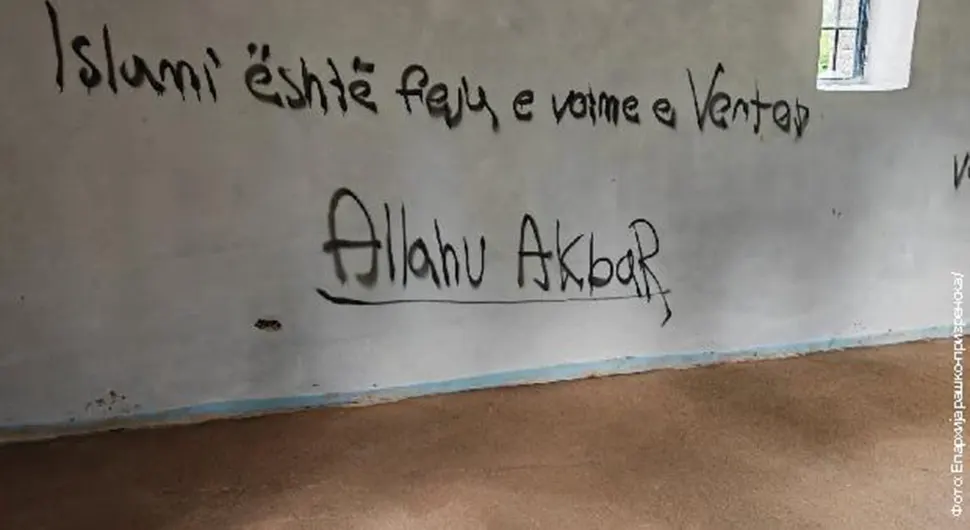 Islami është feja e vetme e Vertet
Allahu AkbaR
Фото: Епархија рашко-призренска/